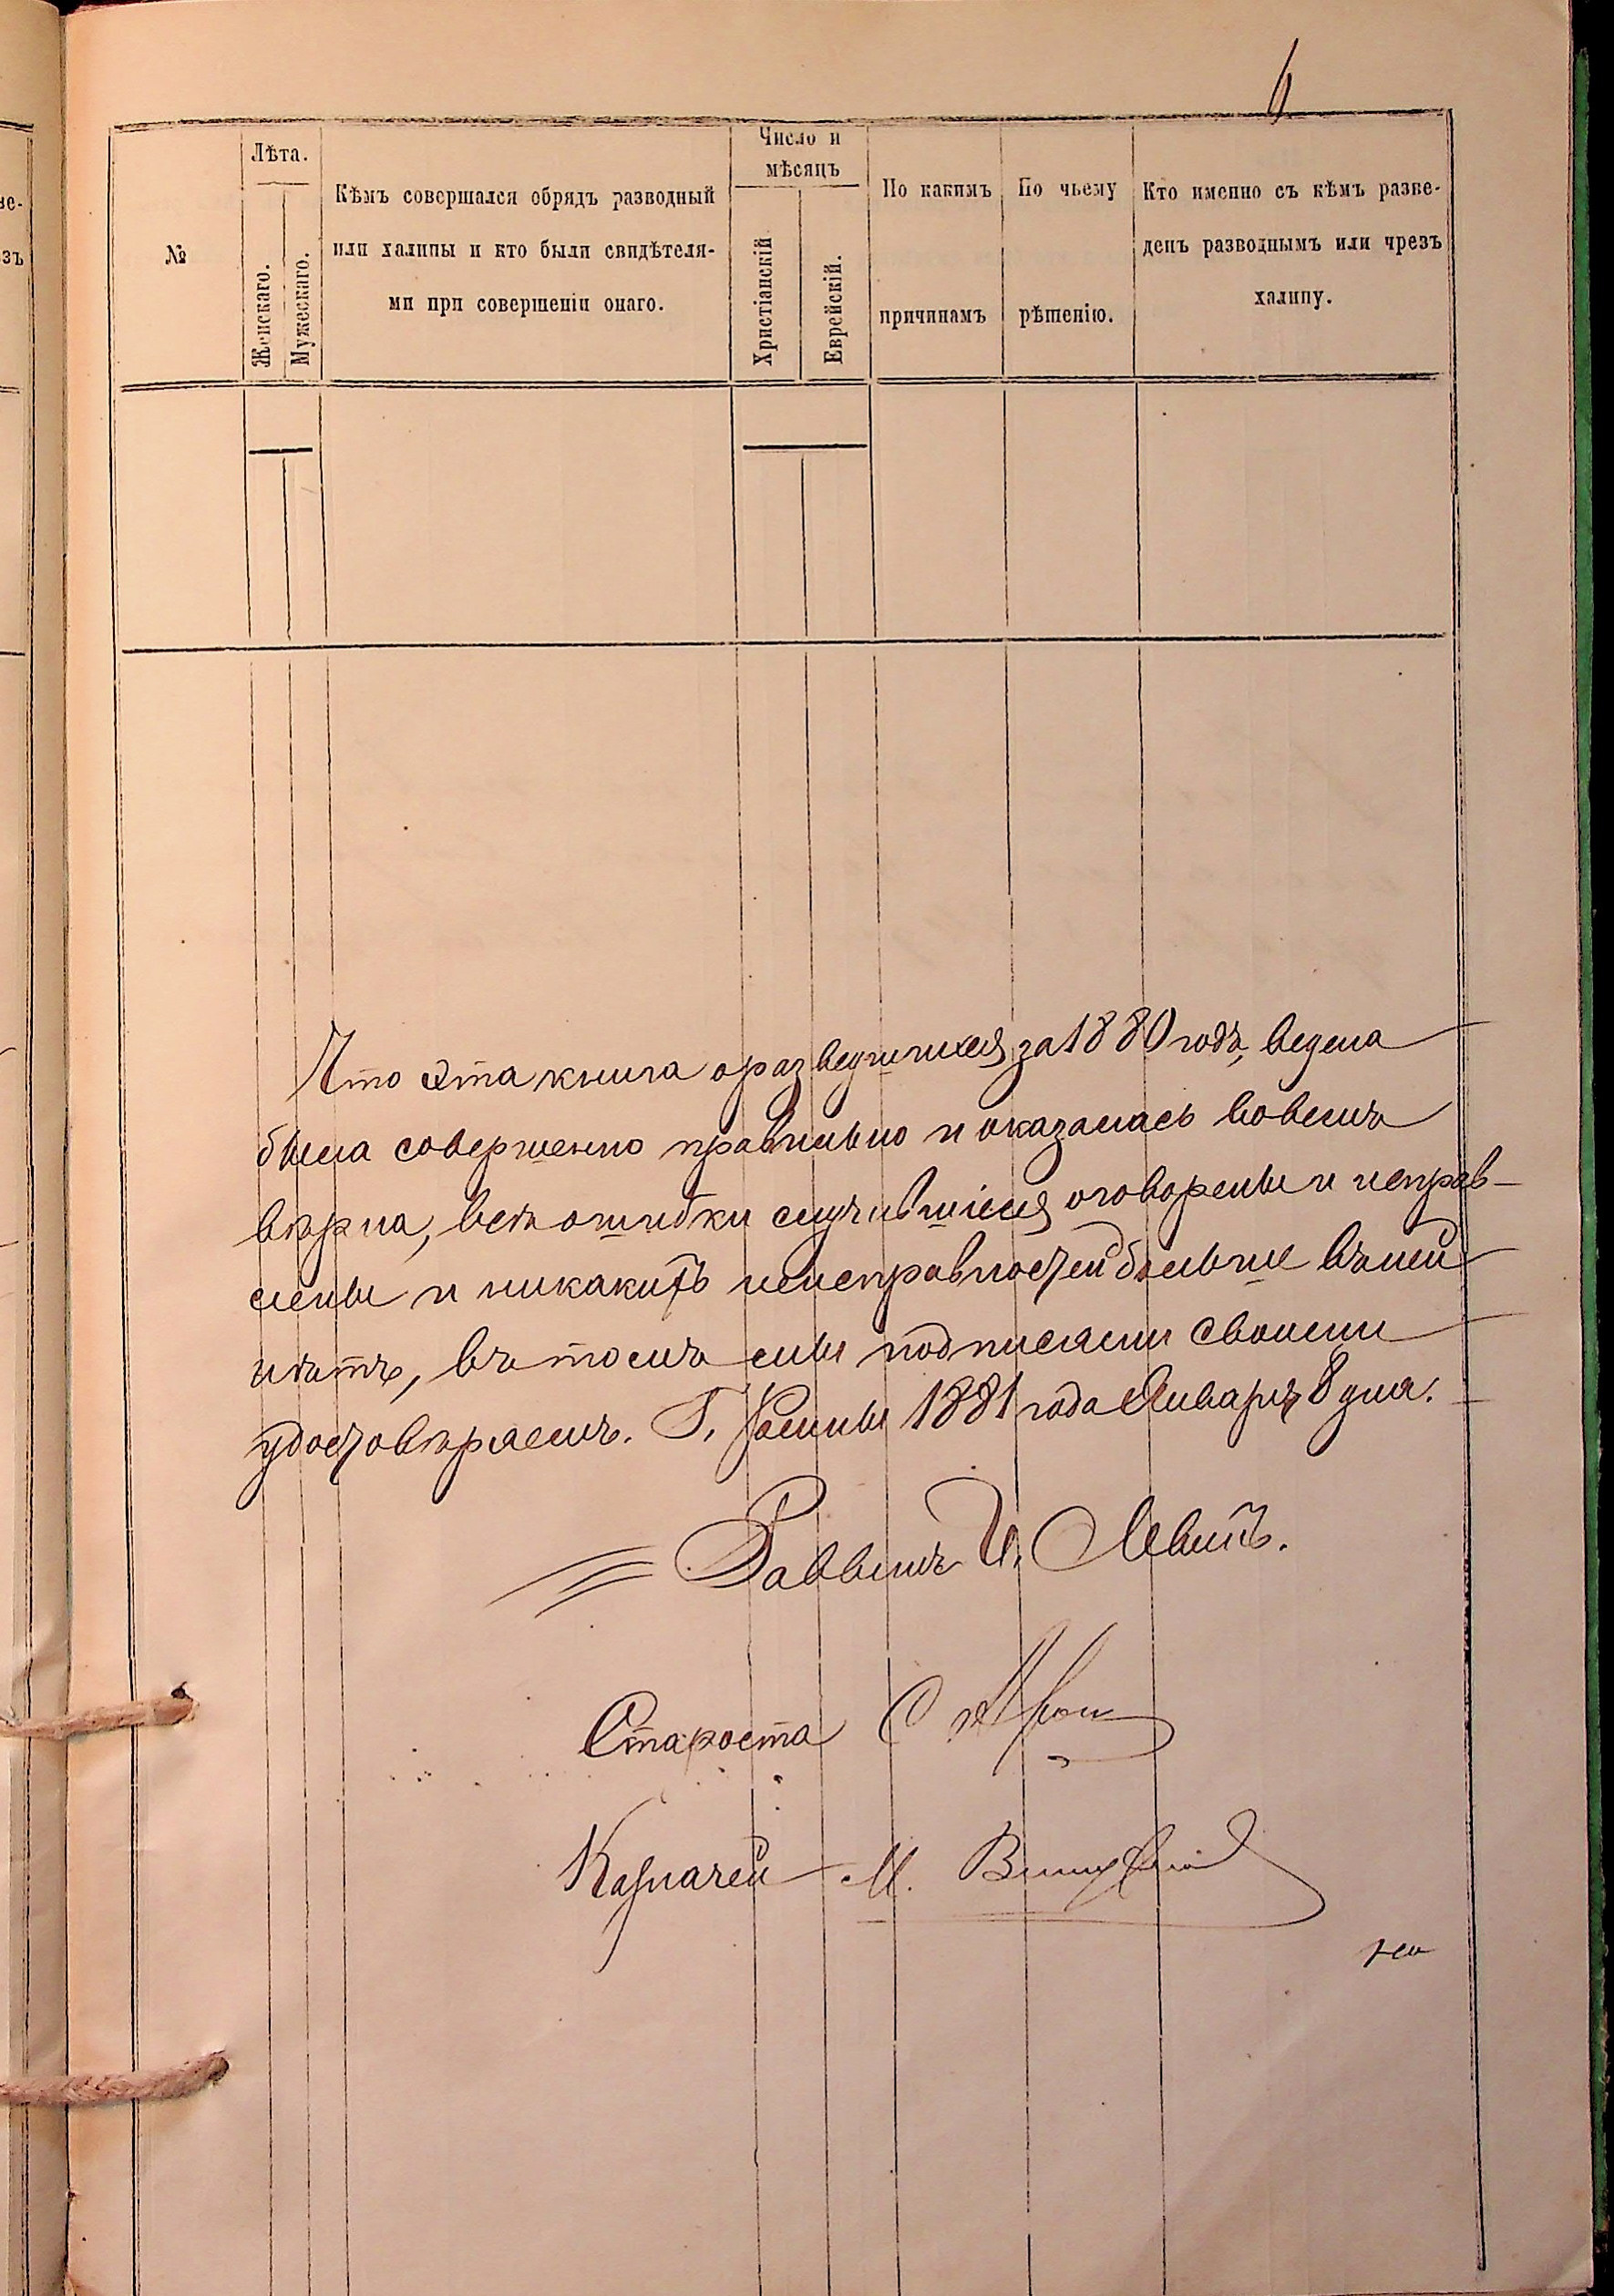 6
№
Лѣта.
Женскаго.
Мужескаго.
Кѣмъ совершался обрядъ разводный
или халицы и кто были свидѣтеля-
ми при совершеніи онаго.
Число и
мѣсяцъ
Христіанскій
Еврейскій.
По какимъ
причинамъ
По чьему
рѣшенію.
Кто именно съ кѣмъ разве-
денъ разводнымъ или чрезъ
халицу.
Что эта книга о разведшихся за 1880 годъ, ведена
была совершенно правильно и оказалась вовсемъ
вѣрна, всѣ ошибки случившіеся оговорены и исправ-
лены и никакихъ неисправностей больше въ ней
нѣтъ, въ томъ мы подписями своими
удостовѣряемъ. Г. 1881 года Января 8 дня.
Раввинъ И. Левитъ.
Староста С
Казначей М.